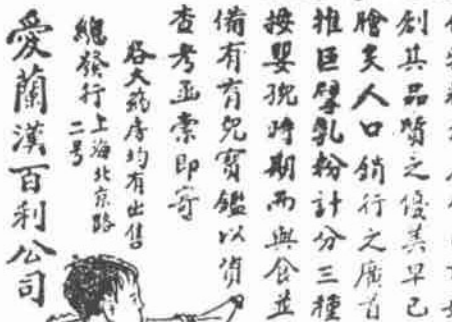 創其品質之優美早已
膾炙人口銷行之廣首
推巨擘乳粉計分三種
按嬰孩時期而與食並
備有育兒寶鑑以資
查考函索即寄
各大藥房均有出售
總發行上海北京路
二号
愛蘭漢百利公司